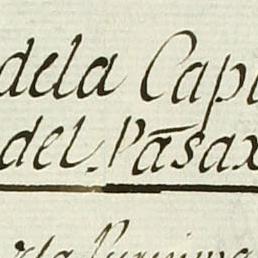 dela Capi
del Pāsax